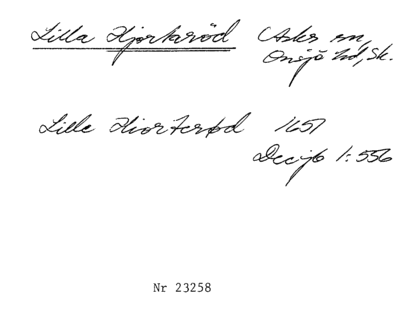 Lilla Hjortaröd Asks sn,
Onsjö hd, Sk.
Lille Hiorterød 1651
Decijb 1:556
Nr 23258